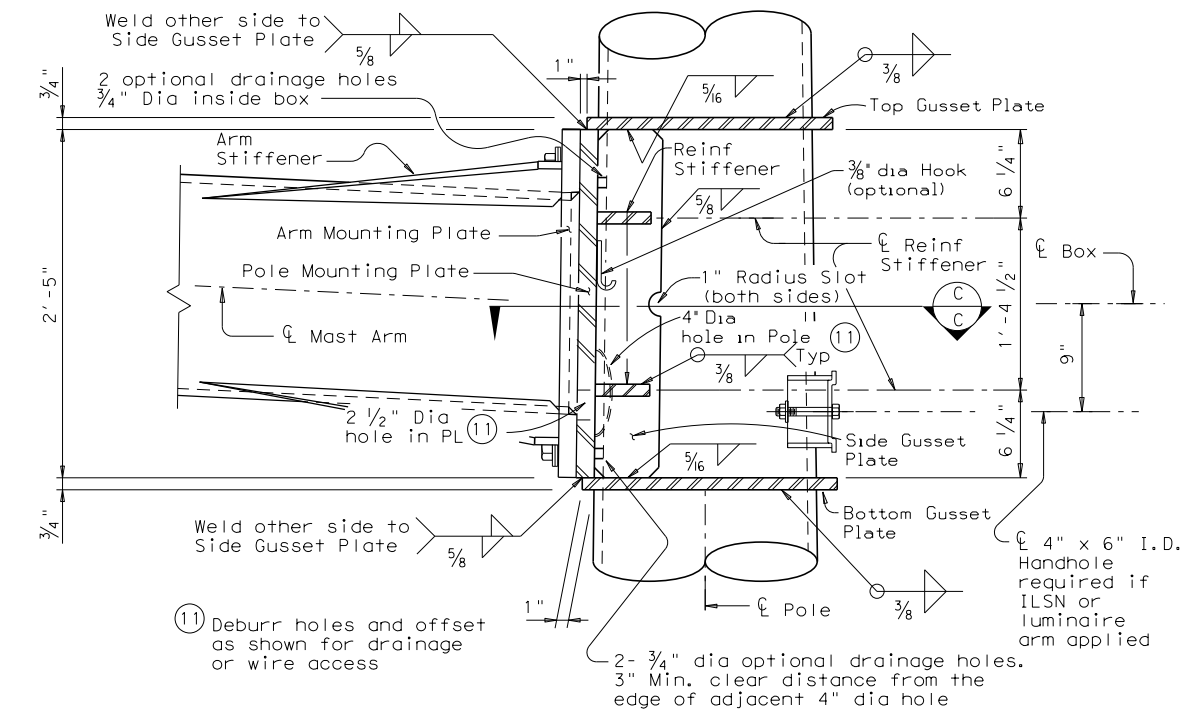 Weld other side to
Side Gusset Plate
5/8
3/4"
2 optional drainage holes
3/4" Dia inside box
1"
5/16
3/8
Top Gusset Plate
Arm
Stiffener
Reinf
Stiffener
3/8" dia Hook
(optional)
6 1/4"
5/8
Arm Mounting Plate
℄ Reinf
Stiffener
℄ Box
Pole Mounting Plate
1" Radius Slot
(both sides)
2'-5"
1'-4 1/2"
C
C
℄ Mast Arm
4" Dia
hole in Pole
11
9"
3/8
Typ
2 1/2" Dia
hole in PL
11
6 1/4"
Side Gusset
Plate
5/16
3/4"
Weld other side to
Side Gusset Plate
5/8
Bottom Gusset
Plate
℄ 4" x 6" I.D.
Handhole
required if
ILSN or
luminaire
arm applied
1"
℄ Pole
3/8
11
Deburr holes and offset
as shown for drainage
or wire access
2- 3/4" dia optional drainage holes.
3" Min. clear distance from the
edge of adjacent 4" dia hole